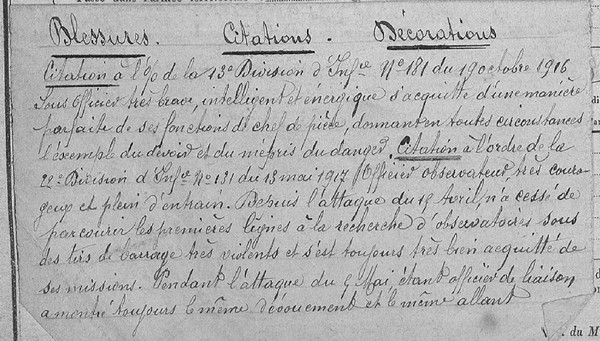 Passé dans l'armée territoriale
Blessures. Citations. Décorations
Citation à l'O/ de la 13e Division d'Infie No 181 du 19 octobre 1916
Sous Officier très brave, intelligent et énergique s'acquitte d'une manière
parfaite de ses fonctions de chef de pièce, donnant en toutes circonstances
l'exemple du devoir et du mépris du danger Citation à l'ordre de la
22e Division d'Infie No 131 du 13 mai 1917 Officier observateur très coura-
geux et plein d'entrain. Depuis l'attaque du 19 Avril, n'a cessé de
parcourir les premières lignes à la recherche d'observatoires sous
des tirs de barrage très violents et s'est toujours très bien acquitté de
ses missions. Pendant l'attaque du 5 Mai, étant officier de liaison
a montré toujours le même dévouement et le même allant
du M